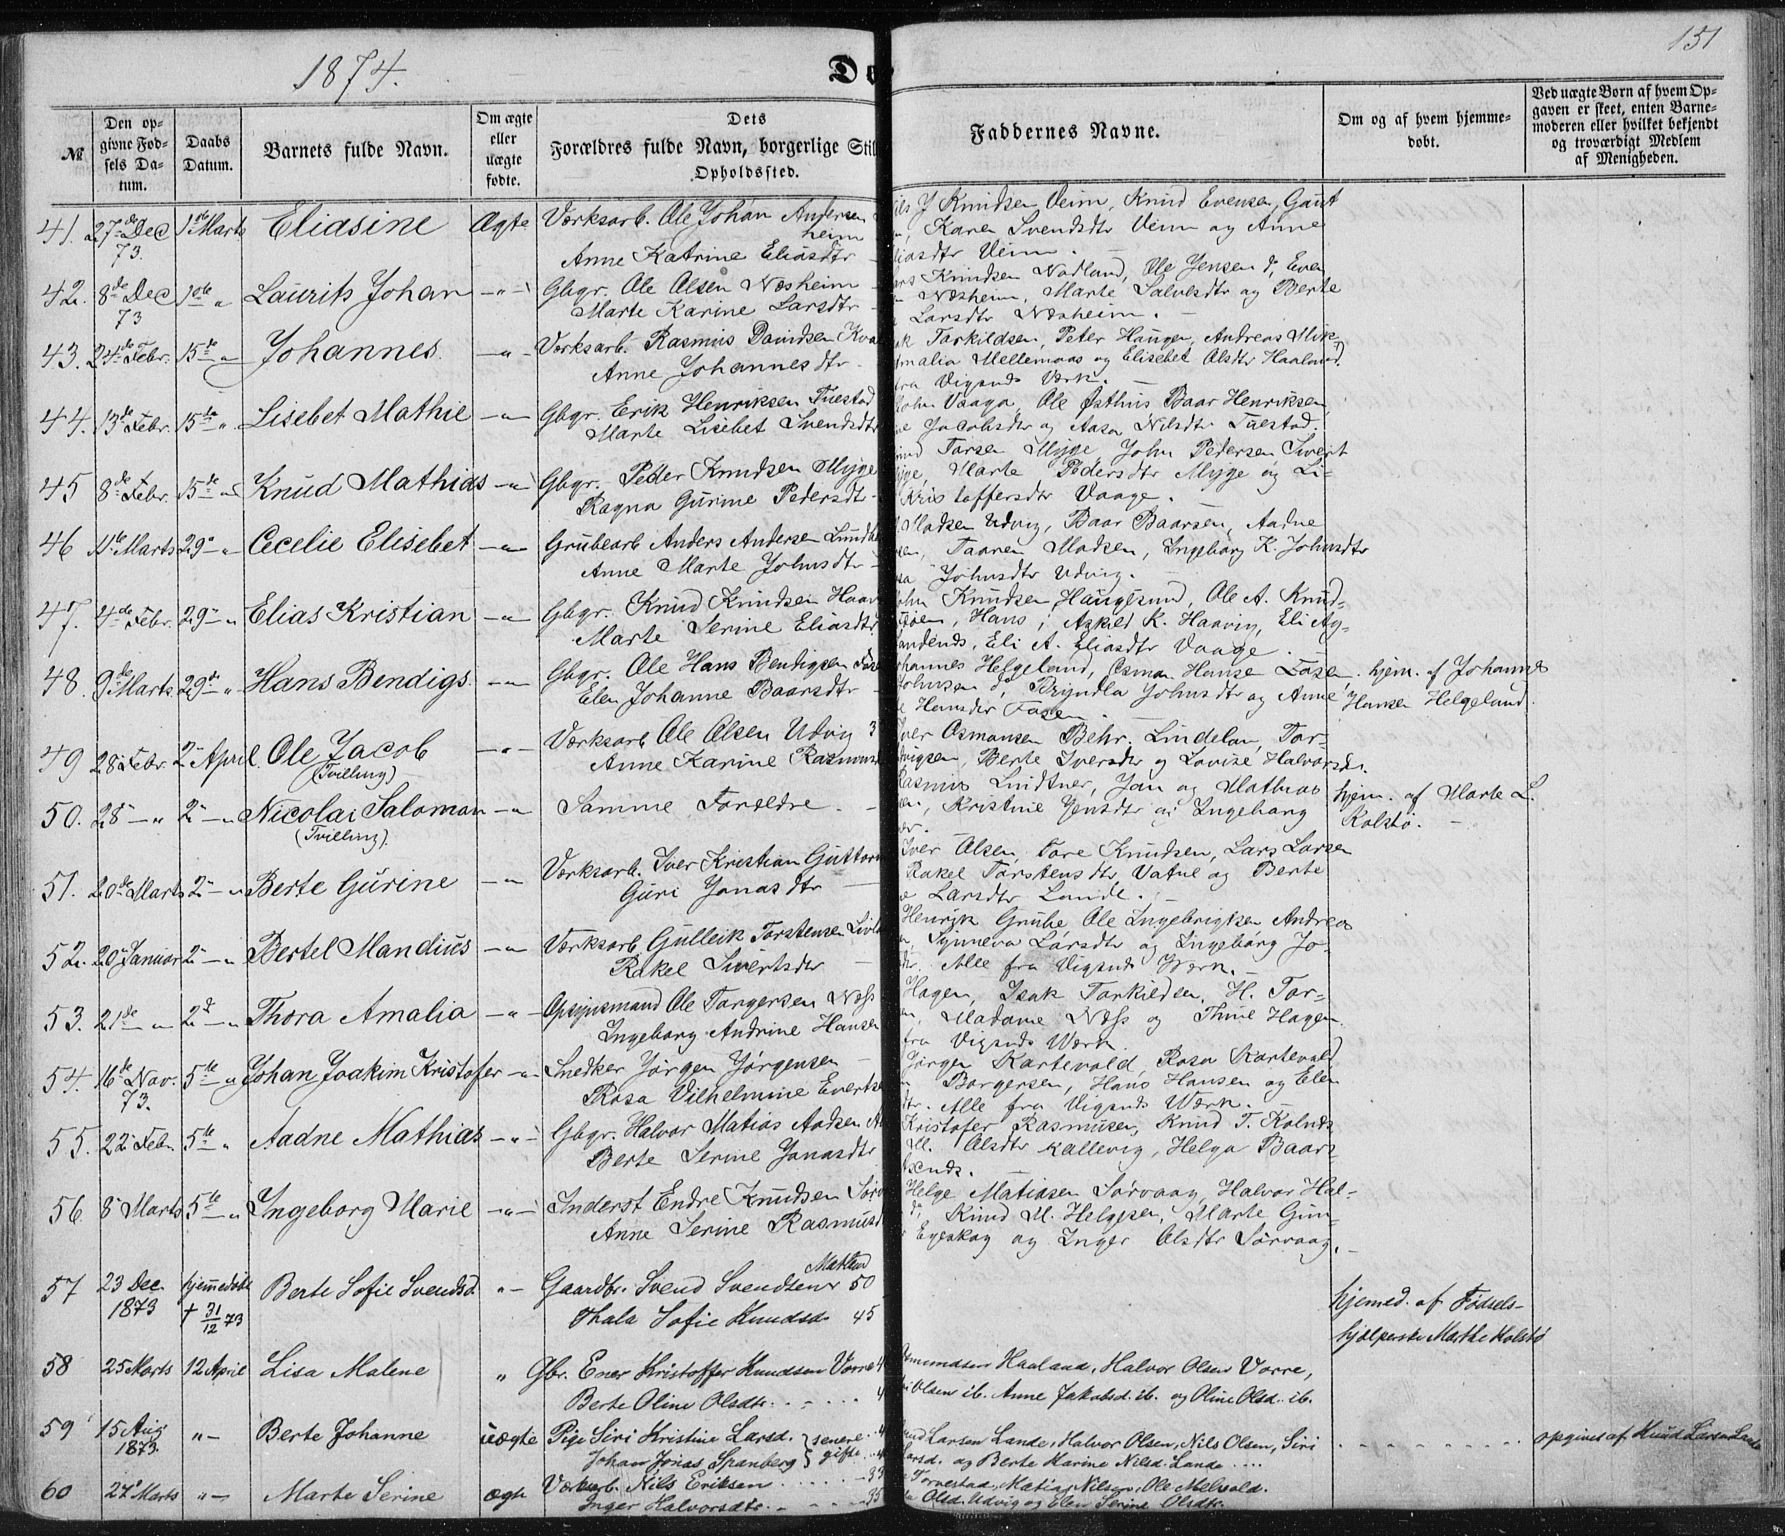 1874.
Dø
151
№
Den op-
givne Fød-
sels Da-
tum.
Daabs
Datum.
Barnets fulde Navn.
Om ægte
eller
uægte
fødte.
Dets
Forældres fulde Navn, borgerlige Stil
Opholdssted.
Faddernes Navne.
Om og af hvem hjemme-
døbt.
Ved uægte Børn af hvem Op-
gaven er skeet, enten Barne-
moderen eller hvilket bekjendt
og troværdigt Medlem
af Menigheden.
41. 27de Dec 73. 1ste Marts Eliasine Ægte Værksarb. Ole Johan Andersen
heim
Anne Katrine Eliasdtr
J Knudsen Veim, Knud Evensen, Gaut
Karen Svendsdtr Veim og Anne
Eliasdtr Veim.
42. 8de Dec 73 1ste " Laurits Johan -"- Gbgr. Ole Olsen Næsheim
Marte Karine Larsdtr
Knudsen Nodland, Ole Jensen do, Even
Næsheim, Marte Salvesdtr og Berte
Larsdtr Næsheim.
43. 24de Febr. 15de " Johannes. -"- Værksarb. Rasmus Davidsen Kva
Anne Johannesdtr
Torkildsen, Peter Haugen, Andreas Mik-
Amalia Mellemaas og Elisebet Olsdtr Haaland.
fra Vigsnæs Værk.
44. 13de Febr. 15de " Lisebet Mathie -"- Gbgr. Erik Henriksen Tuestad
Marte Lisebet Svendsdtr
John Vaaga Ole Østhus Baar Henriksen
Jacobsdtr og Aasa Nilsdtr Tuestad.
45 8de Febr. 15de " Knud Mathias -"- Gbgr. Peder Knudsen Myge
Ragna Gurine Pedersdtr
Torsen Myge, John Pedersen Sivert
Marte Pedersdtr Myge og Li-
Kristoffersdtr Vaage.
46 11te Marts 29de " Cecelie Elisebet -"- Grubearb Anders Andersen Lund
Anne Marte Johnsdtr
Madsen Udvig, Baar Baarsen, Aadne
Taaren Madsen, Ingeborg K. Johnsdtr
Johnsdtr Udvig.
47. 4de Febr. 29de " Elias Kristian -"- Gbgr. Knud Knudsen Haav
Marte Serine Eliasdtr
John Knudsen Haugesund, Ole A. Knud-
Hans, Askild K. Haavig, Eli As-
Eli A. Eliasdtr Vaage.
48. 9de Marts 29de " Hans Bendigs. -"- Gbgr. Ole Hans Bendigsen Fose
Elen Johanne Baarsdtr
Johannes Helgeland, Osmon Hansen Fosen,
Johnsen do, Bryndla Johnsdtr og Anne
Hansdtr Fosen.
hjem. af Johannes
Hansen Helgeland.
49 28de Febr. 2den April Ole Jacob -"- Værksarb Ole Olsen Udvig 3
(Tvilling) Anne Karine Rasmus
Iver Osmonsen Behr. Lindelan, Tor-
Berte Iversdtr og Lovise Halvorsdr.
50. 28-" 2-" Nicolai Salomon -"- Samme Forældre.
(Tvilling).
Rasmus Lindtner, Jan og Mathias
Kristine Jensdtr og Ingeborg
hjem. af Marte L.
Kolstø.
51. 20de Marts 2-" Berte Gurine -"- Værksarb. Iver Kristian Guttorm
Guri Jonasdtr
Iver Olsen, Tore Knudsen, Lars Larsen
Rakel Torstensdtr Vatne og Berte
Larsdtr Lande.
52. 20 Januar 2-" Bertel Mandius -"- Værksarb. Gulleik Torstensen
Rakel Sivertsdtr
Henrik Grube Ole Ingebrigtsen Andreas
Synneva Larsdtr og Ingeborg Jo-
Alle fra Vigsnæs Værk.
53. 21de -" 2d-" Thora Amalia -"- Opsynsmand Ole Torgersen Næss
Ingeborg Andrine Hansen
Hagen, Isak Torkildsen, H. Tor-
Madame Næss og Thine Hagen
fra Vigsnæs Værk.
54. 16de Nov. 73. 5te " Johan Joakim Kristofer -"- Snedker Jørgen Jørgensen
Rosa Vilhelmine Everts
Jørgen Kartevold, Rosa Kartevold
Borgersen, Hans Hansen og Elen
Alle fra Vigsnæs Værk.
55. 22 Febr. 5te " Aadne Mathias -"- Gbgr. Halvor Matias Aadsen
Berte Serine Jonasdtr
Kristofer Rasmusen, Knud T. Kolnes
Olsdtr Kallevig, Helga Baars-
56 8 Marts 5te " Ingeborg Marie -"- Inderst Endre Knudsen Sørv
Anne Serine Rasmusd
Helge Matiasen Sørvaag, Halvor Hal-
Knud M. Helgesen, Marte Gun-
Eyeskog og Inger Olsdtr Sørvaag.
57 23 Dec. 1873 hjemmedøbt † 31/12 73 Berte Sofie Svendsd. "- Gaardbr. Svend Svendsen 50
Thala Sofie Knudsd. 45
hjemed. af Fødsels-
hjælperske Marthe Kolstø
58 25 Marts 12 April Lisa Malene " Gbr. Ener Kristoffer Knudsen Vorre 4
Berte Oline Olsdtr. 4
Haaland, Halvor Olsen Vorre,
Olsen ib. Anne Jakobsd. ib. og Oline Olsd. ib.
59 15 Aug 1873 "- Berte Johanne uægte Pige Siri Kristine Larsd. } senere
Johan Jonas Spanberg } gifte
Larsen Lande, Halvor Olsen, Nils Olsen, Siri
Larsd. og Berte Karine Nilsd. Lande
opgivet af Knud Larsen Lande
60 27 Marts "- Marte Serine ægte Værksarb. Nils Eriksen 39
Inger Halvorsdtr. 35
Tornestad, Matias Nilsen, Ole Melvold.
Olsd. Udvig og Elen Serine Olsdtr.